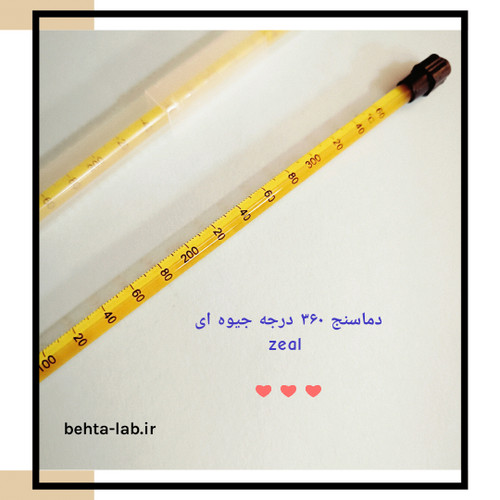 60
40
20
300
80
60
40
20
200
80
60
40
20
100
دماسنج ۳۶۰ درجه جیوه ای
zeal
behta-lab.ir